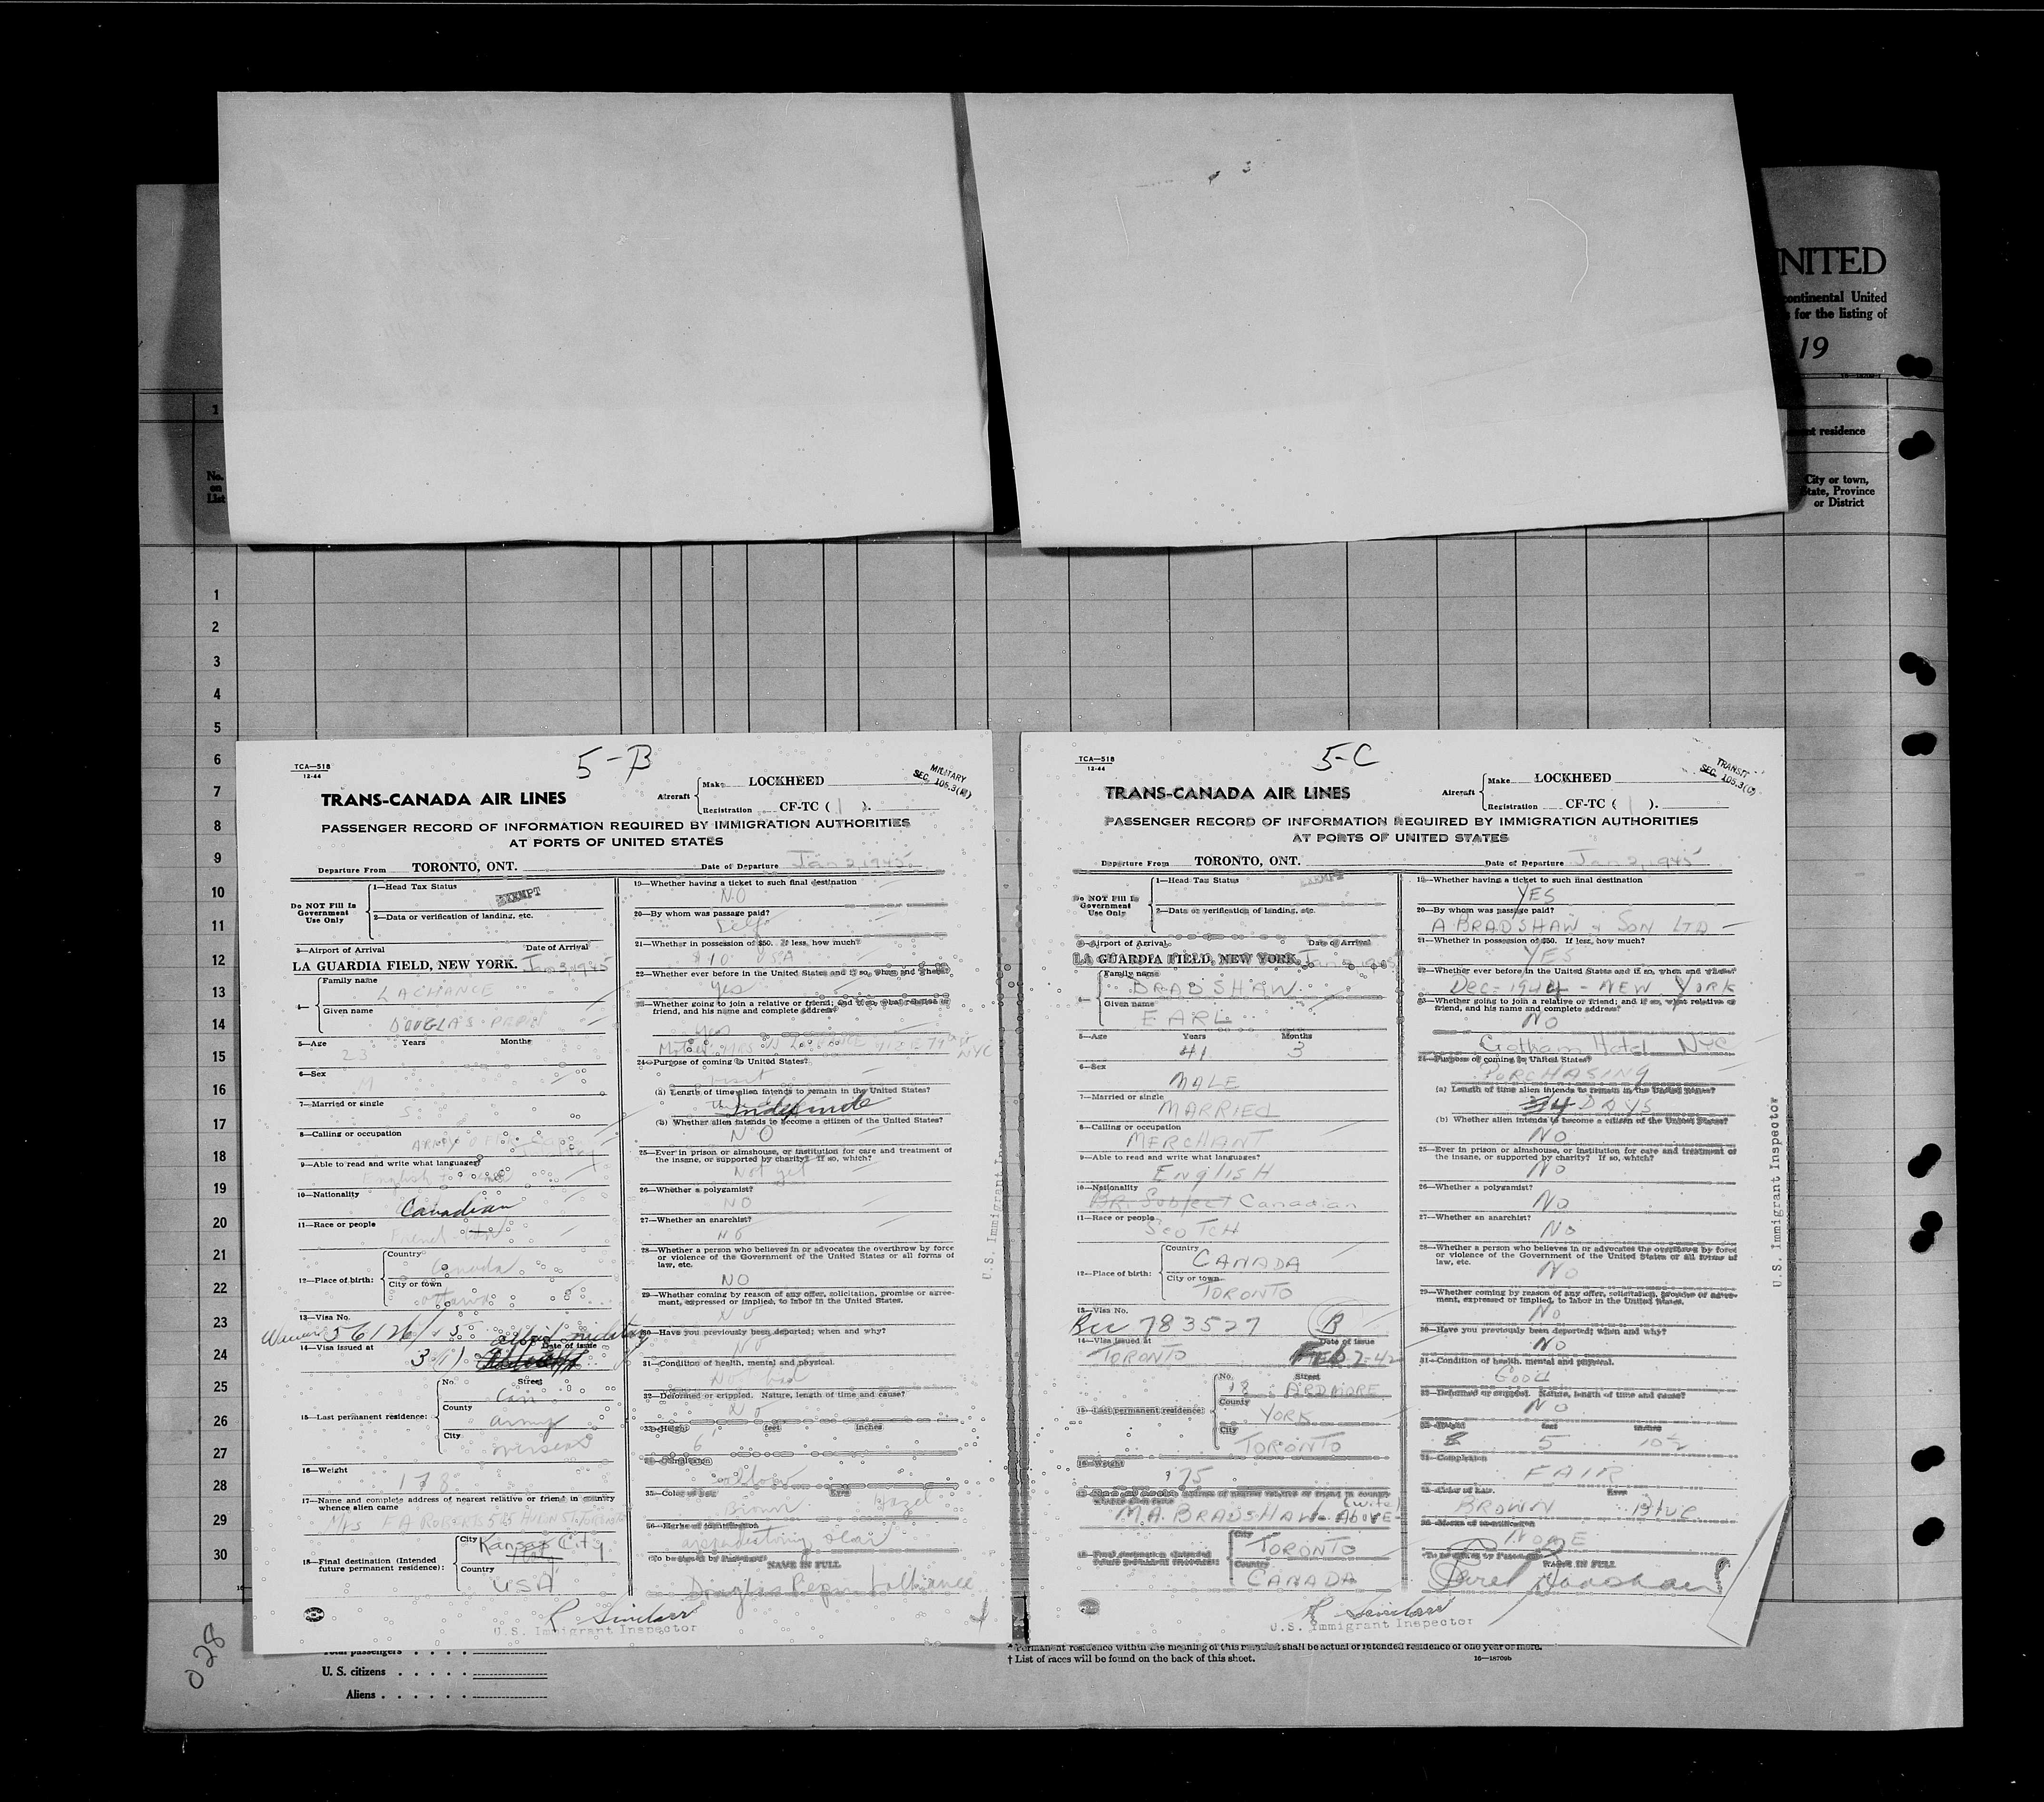 NITED
continental United
for the listing of
19
residence
City or town,
State, Province
or District
No.
on
List
1
1
2
3
4
5
6
7
8
9
10
11
12
13
14
15
16
17
18
19
20
21
22
23
24
25
26
27
28
29
30
5-B
TCA—518
12-44
MILITARY
SEC. 105.3
TRANS-CANADA AIR LINES
Aircraft
Make LOCKHEED
Registration CF-TC ( ).
PASSENGER RECORD OF INFORMATION REQUIRED BY IMMIGRATION AUTHORITIES
AT PORTS OF UNITED STATES
Departure From TORONTO, ONT. Date of Departure Jan 2, 1945
Do NOT Fill In
Government
Use Only
1—Head Tax Status
EXEMPT
2—Data or verification of landing, etc.
3—Airport of Arrival Date of Arrival
LA GUARDIA FIELD, NEW YORK. Jan 3, 1945
4—
Family name
LACHANCE
Given name
DOUGLAS
5—Age Years Months
23
6—Sex
M
7—Married or single
S
8—Calling or occupation
ARMY
9—Able to read and write what languages?
English
10—Nationality
Canadian
11—Race or people
French
12—Place of birth:
Country
Canada
City or town
Ottawa
13—Visa No.
14—Visa issued at Date of issue
military
15—Last permanent residence:
No. Street
Can
County
army
City
overseas
16—Weight
178
17—Name and complete address of nearest relative or friend in country
whence alien came
Mrs F A ROBERTS 585 HURON ST TORONTO
18—Final destination (Intended
future permanent residence):
City Kansas City
Country
USA
19—Whether having a ticket to such final destination
NO
20—By whom was passage paid?
Self
21—Whether in possession of $50. If less, how much?
$10 USA
22—Whether ever before in the United States and if so, when and where?
Yes
23—Whether going to join a relative or friend; and if so, what relative or
friend, and his name and complete address?
Yes
Mother NYC
24—Purpose of coming to United States?
Visit
(a) Length of time alien intends to remain in the United States?
(b) Whether alien intends to become a citizen of the United States?
NO
25—Ever in prison or almshouse, or institution for care and treatment of
the insane, or supported by charity? If so, which?
Not yet
26—Whether a polygamist?
NO
27—Whether an anarchist?
NO
28—Whether a person who believes in or advocates the overthrow by force
or violence of the Government of the United States or all forms of
law, etc.
NO
29—Whether coming by reason of any offer, solicitation, promise or agree-
ment, expressed or implied, to labor in the United States.
NO
30—Have you previously been deported; when and why?
NO
31—Condition of health, mental and physical.
Not bad
32—Deformed or crippled. Nature, length of time and cause?
NO
33—Height feet inches
6
34—Complexion
35—Color of hair Eyes
Brown Hazel
36—Marks of identification
To be signed by Passenger NAME IN FULL
U.S. Immigrant Inspector
R Sinclair
U.S. Immigrant Inspector
5-C
TCA—518
12-44
TRANSIT
SEC. 105.3
TRANS-CANADA AIR LINES
Aircraft
Make LOCKHEED
Registration CF-TC ( ).
PASSENGER RECORD OF INFORMATION REQUIRED BY IMMIGRATION AUTHORITIES
AT PORTS OF UNITED STATES
Departure From TORONTO, ONT. Date of Departure Jan 2, 1945
Do NOT Fill In
Government
Use Only
1—Head Tax Status
EXEMPT
2—Data or verification of landing, etc.
3—Airport of Arrival Date of Arrival
LA GUARDIA FIELD, NEW YORK.
4—
Family name
BRADSHAW
Given name
EARL
5—Age Years Months
41 3
6—Sex
MALE
7—Married or single
MARRIED
8—Calling or occupation
MERCHANT
9—Able to read and write what languages?
ENGLISH
10—Nationality
BR. Subject Canadian
11—Race or people
SCOTCH
12—Place of birth:
Country
CANADA
City or town
TORONTO
13—Visa No.
783527 B
14—Visa issued at Date of issue
TORONTO FEB 7-42
15—Last permanent residence:
No. Street
18 ARDMORE
County
YORK
City
TORONTO
16—Weight
175
17—Name and complete address of nearest relative or friend in country
whence alien came
(wife)
M.A. BRADSHAW - ABOVE
18—Final destination (Intended
future permanent residence):
City
TORONTO
Country
CANADA
19—Whether having a ticket to such final destination
YES
20—By whom was passage paid?
A. BRADSHAW & SON LTD
21—Whether in possession of $50. If less, how much?
YES
22—Whether ever before in the United States and if so, when and where?
Dec-1944 - NEW YORK
23—Whether going to join a relative or friend; and if so, what relative or
friend, and his name and complete address?
NO
Gotham Hotel NYC
24—Purpose of coming to United States?
PURCHASING
(a) Length of time alien intends to remain in the United States?
4 DAYS
(b) Whether alien intends to become a citizen of the United States?
NO
25—Ever in prison or almshouse, or institution for care and treatment of
the insane, or supported by charity? If so, which?
NO
26—Whether a polygamist?
NO
27—Whether an anarchist?
NO
28—Whether a person who believes in or advocates the overthrow by force
or violence of the Government of the United States or all forms of
law, etc.
NO
29—Whether coming by reason of any offer, solicitation, promise or agree-
ment, expressed or implied, to labor in the United States.
NO
30—Have you previously been deported; when and why?
NO
31—Condition of health, mental and physical.
GOOD
32—Deformed or crippled. Nature, length of time and cause?
NO
33—Height feet inches
5 10½
34—Complexion
FAIR
35—Color of hair Eyes
BROWN BLUE
36—Marks of identification
NONE
To be signed by Passenger NAME IN FULL
U.S. Immigrant Inspector
R Sinclair
U.S. Immigrant Inspector
028
Total passengers
U. S. citizens
Aliens
* Permanent residence within the meaning of this manifest shall be actual or intended residence of one year or more.
† List of races will be found on the back of this sheet.
16—18709b